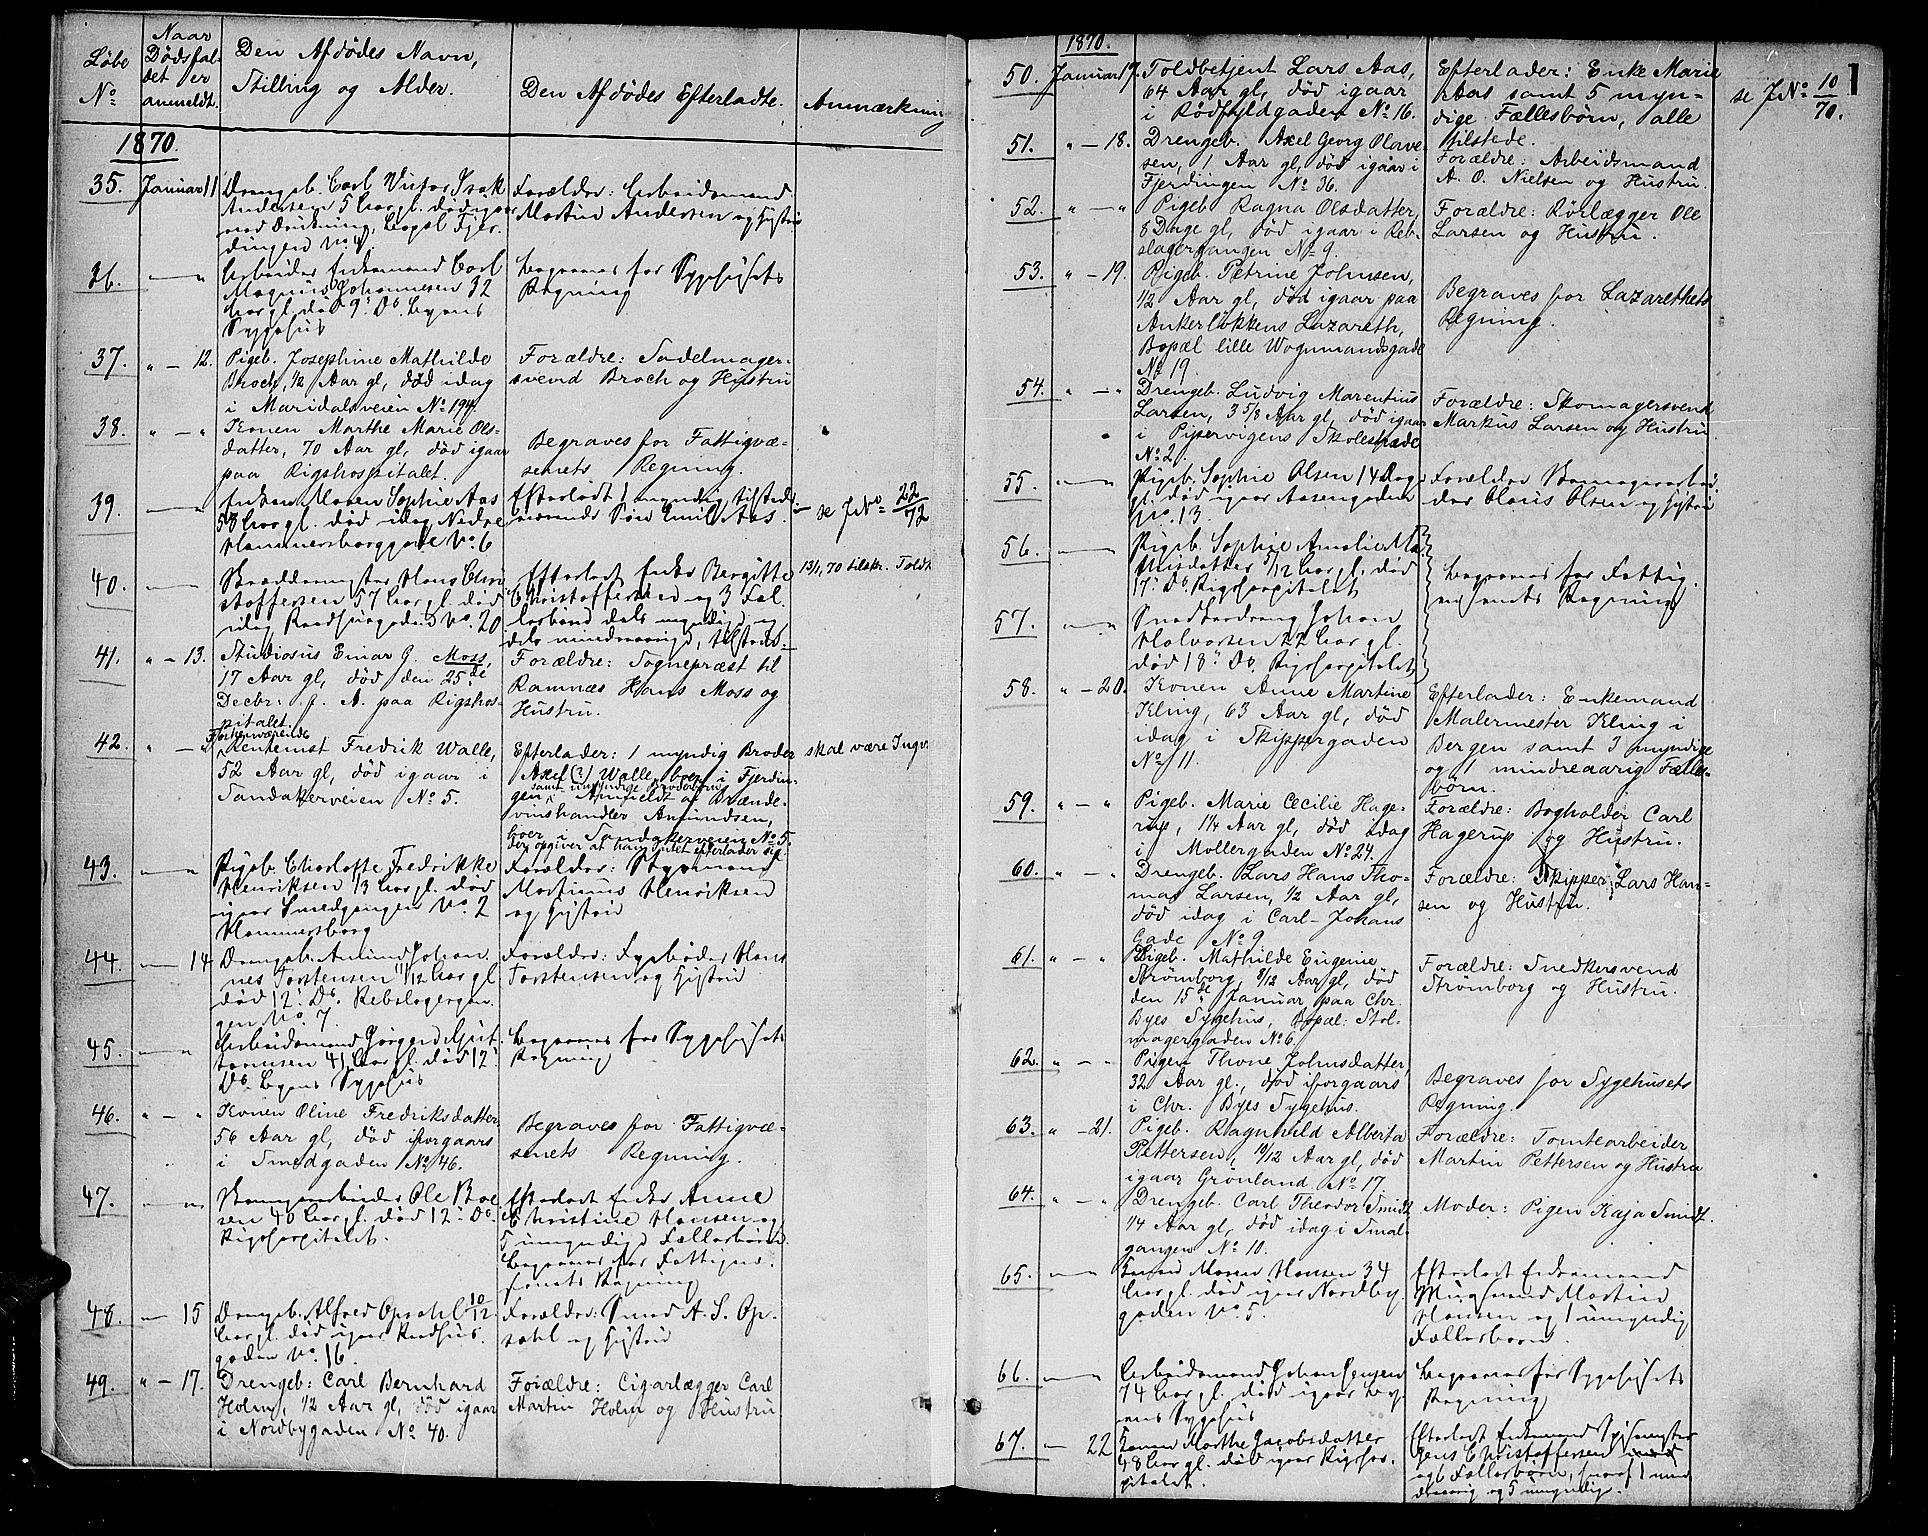 Løbe
No
Naar
Dødsfal-
det er
anmeldt.
Den Afdødes Navn,
Stilling og Alder.
Den Afdødes Efterladte.
Anmærkning
1870.
35. Januar 11 Drengeb. Carl Victor Isak
Andersen 5 Aar gl. død igaar
ved Drukning, Bopæl Fjer-
dingen No.
Forældre: Arbeidsmand
Martin Andersen og Hustru
36. — " Arbeider Enkemand Carl
Magnus Johannesen 32
Aar gl. død 9' Ds. Byens
Sygehus
Begraves for Sygehusets
Regning
37. " — 12. Pigeb. Josephine Mathilde
Broch, 1/2 Aar gl, død idag
i Maridalsveien No 194.
Forældre: Sadelmager-
svend Broch og Hustru
38. " — " Konen Marthe Marie Ols-
datter, 70 Aar gl, død igaar
paa Rigshospitalet.
Begraves for Fattigvæ-
senets Regning.
39. — " Enken Maren Sophie Aas
58 Aar gl. død idag Nedre
Hammersborggade No. 6
Efterladt 1 myndig tilstede-
værende Søn Emil Aas.
se J No 22/72
40. — " Skræddermester Hans Chri
stoffersen 57 Aar gl. død
idag Raadhusgaden No. 20
Efterladt Enke Bergitte
Christoffersen og 3 Fæl-
lesbørn dels myndige og
dels mindreaarige, tilstede
13/1 70 tilskr. Toldt
41. " — 13. Studiosus Einar G. Moss,
17 Aar gl, død den 25de
Decbr. f. A. paa Rigshos-
pitalet.
Forældre: Sognepræst til
Ramnæs Hans Moss og
Hustru.
42. " — " Forhenværende
Rentenist Fredrik Walle,
52 Aar gl, død igaar i
Sandakerveien No 5.
Efterlader: 1 myndig Broder
Axel (?) Walle, boer i Fjerdin-
samt umyndige Broderbørn
gen. Anmeldt af Brænde-
vinshandler Amundsen,
boer i Sandakerveien No 5.
der opgiver at han intet efterlader sig.
skal være Ingv.
43. — " Pigeb. Charlotte Fredrikke
Henriksen 13 Aar gl. død
igaar Smedgangen No. 2
Hammersborg
Forældre: Styrmand
Martinus Henriksen
og Hustru
44. — 14 Drengeb. Amund Johan-
nes Torstensen 11/12 Aar gl
død 12' Ds. Rebslagergan-
gen No. 7.
Forældre: Fyrbøder Hans
Torstensen og Hustru
45. — " Arbeidsmand Jørgen Gut-
tormsen 41 Aar gl. død 12'
Ds. Byens Sygehus
Begraves for Sygehusets
Regning
46. " — " Konen Oline Fredriksdatter,
56 Aar gl, død iforgaars
i Smedgaden No 46.
Begraves for Fattigvæ-
senets Regning.
47. — " Ole Boe
sen 40 Aar gl. død 12' Ds.
Rigshospitalet.
Efterladt Enke Anne
Christine Hansen og
5 umyndige Fællesbørn.
Begraves for Fattigvæ-
senets Regning
48. — 15 Drengeb. Alfred Opsahl 10/12
Aar gl. død igaar Raadhus-
gaden No. 16.
Forældre: Smed A. S. Op-
sahl og Hustru
49. " — 17. Drengeb: Carl Bernhard
Holm, 1/2 Aar gl, død igaar
i Nordbygaden No 40.
Forældre: Cigarlægger Carl
Martin Holm og Hustru
1870.
50. Januar 17. Toldbetjent Lars Aas,
64 Aar gl, død igaar
i Rødfyldgaden No 16.
Efterlader: Enke Marie
Aas samt 5 myn-
dige Fællesbørn, alle
tilstede.
se J No 10/70.
1
51. " — 18. Drengeb. Axel Georg Olave-
sen, 1 Aar gl, død igaar i
Fjerdingen No 36.
Forældre: Arbeidsmand
A. O. Nielsen og Hustru.
52. " — " Pigeb Ragna Olsdatter,
8 Dage gl, død igaar i Reb-
slagergangen No 9.
Forældre: Rørlægger Ole
Larsen og Hustru.
53. " — 19. Pigeb. Petrine Johnsen,
1/2 Aar gl, død igaar paa
Ankerløkkens Lazareth,
Bopæl lille Wognmandsgade
No 19.
Begraves for Lazarethets
Regning.
54. " — " Drengeb. Ludvig Marentius
Larsen, 3 5/8 Aar gl, død igaar
i Pipervigens Skolestræde
No 2.
Forældre: Skomagersvend
Markus Larsen og Hustru.
55. — " Pigeb. Sophie Olsen 14 Dage
gl. død igaar Aasengaden
No. 13.
Forældre Skomagerarbei
der Claus Olsen og Hustru
56. — " Pigeb. Sophie Amalie
datter 5/12 Aar gl. død
17' Ds. Rigshospitalet
Begraves for Fattig-
væsenets Regning
57. — " Snedkerdreng Johan
Halvorsen 22 Aar gl.
død 18' Ds. Rigshospitalet
58. " — 20. Konen Anne Martine
Kling, 63 Aar gl, død
idag i Skippergaden
No 11.
Efterlader: Enkemand
Malermester Kling i
Bergen samt 3 myndige
og 1 mindreaarig Fælles-
børn.
59. " — " Pigeb. Marie Cecilie Hage-
rup, 1 1/4 Aar gl, død idag
i Møllergaden No 24.
Forældre: Bogholder Carl
Hagerup og Hustru.
60. " — " Drengeb. Lars Hans Tho-
mas Larsen, 1/2 Aar gl,
død idag i Carl-Johans
Gade No 9.
Forældre: Skipper Lars Han-
sen og Hustru.
61. " — " Pigeb. Mathilde Eugenie
Strømborg, 8/12 Aar gl, død
den 15de Januar paa Chr.
Byes Sygehus, Bopæl: Stol-
magergaden No 6.
Forældre: Snedkersvend
Strømborg og Hustru.
62. " — " Pigen Thone Johnsdatter,
32 Aar gl., død iforgaars
i Chr. Byes Sygehus.
Begraves for Sygehusets
Regning.
63. " — 21. Pigeb. Ragnhild Alberta
Pettersen, 10/12 Aar gl, død
igaar Grønland No 17.
Forældre: Tomtearbeider
Martin Pettersen og Hustru
64. " — " Drengeb. Carl Theodor Smidt,
1/4 Aar gl, død idag i Smal-
gangen No 10.
Moder: Pigen Kaja Smidt.
65. — " Konen Maren Hansen 34
Aar gl. død igaar Nordby-
gaden No 5.
Efterladt Enkemand
Martin
Hansen og 1 umyndig
Fællesbarn.
66. — " Arbeidsmand Johan Jensen
74 Aar gl. død igaar By-
ens Sygehus
Begraves for Sygehusets
Regning
67. — 22 Konen Marthe Jacobsdatter
48 Aar gl. død igaar Rigshos-
pitalet.
Efterladt Enkemand
Jens Christoffersen
og 6 Fællesbørn, hvoraf 1 mind
dreaarig og 5 umyndige.